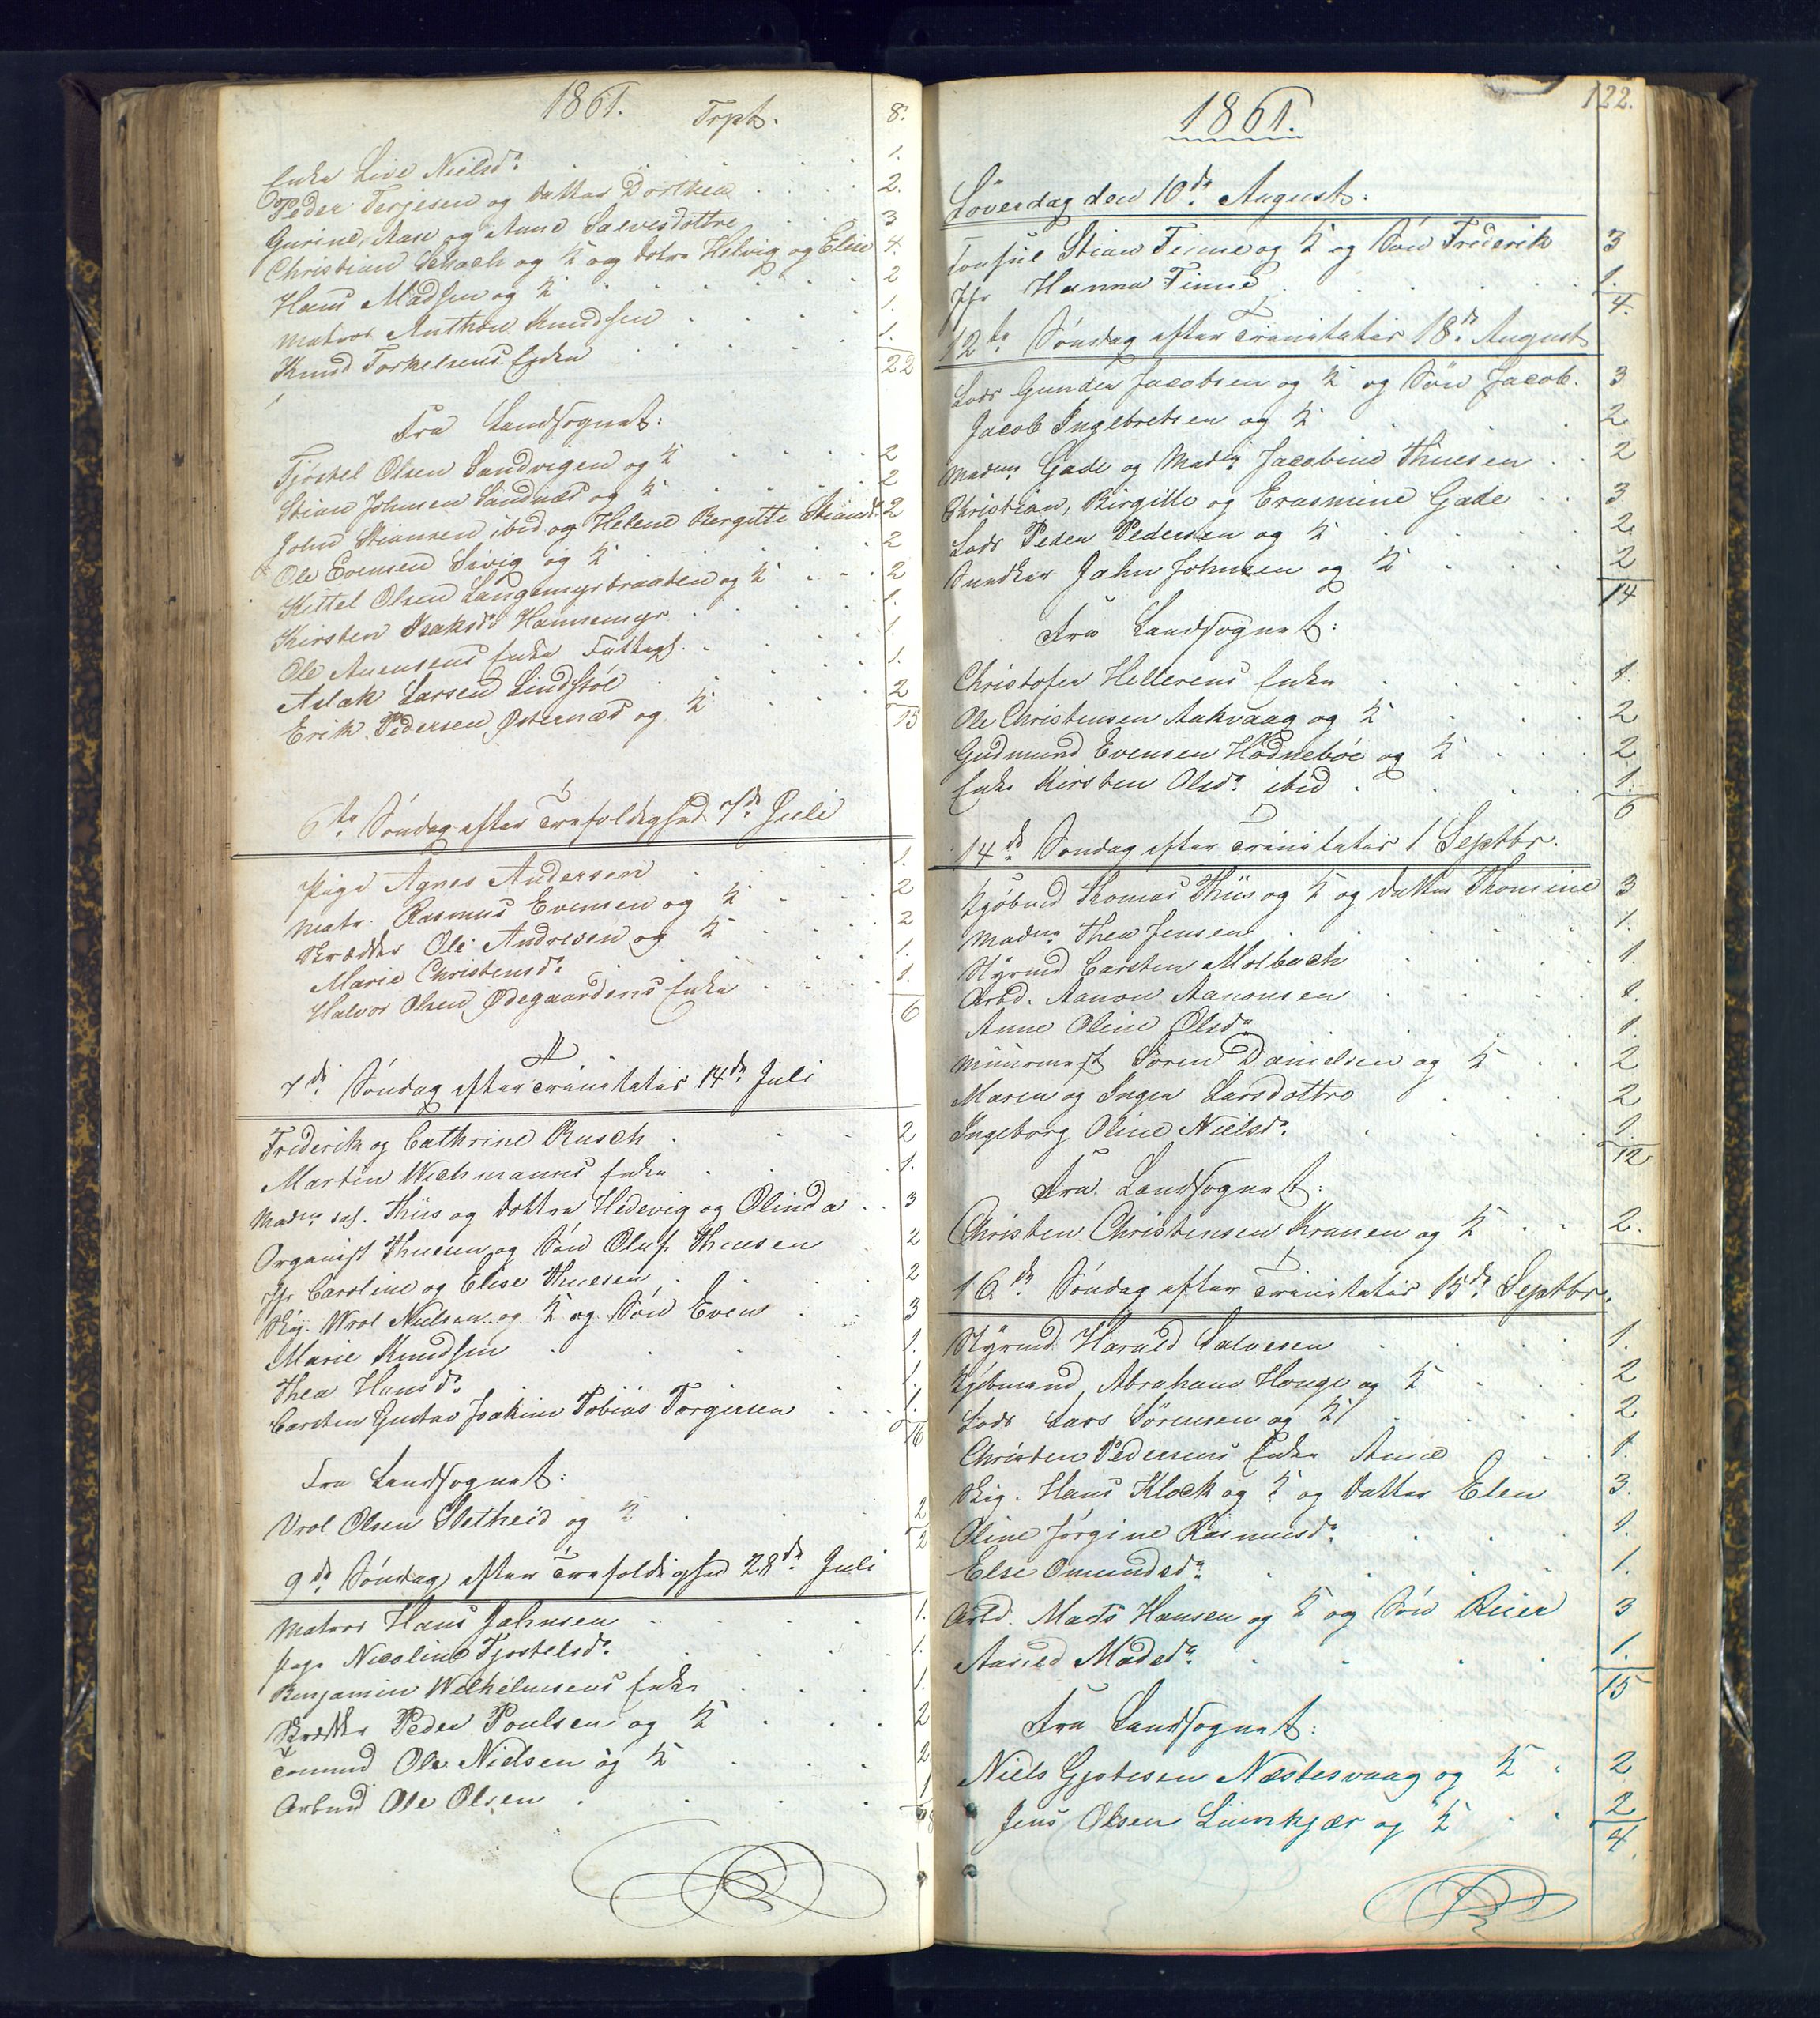 1861.
Trpt. 8.
Enke Live Nielsdr 1.
Peder Terjesen og Datter Dorthea 2.
Gurine, Aase og Anne Salvesdöttre 3
Christian Schach og K og Dotre Helvig og Elise 4.
Hans Madsen og K 2
Matros Anthon Knudsen 1.
Knud Torkelsens Enke 1.
22
Fra Landsognet:
Tjöstel Olsen Sandvigen og K 2
Stian Johnsen Sandnæs og K 2
John Stiansen ibid og Helene Bergitte Stiansd. 2
Ole Evensen Sivig og K 2
Kittel Olsen Langemyrbraaten og K 2
Kirsten Isaksdr Hannemyr 1.
Ole Anensens Enke Fattigh. 1.
Aslak Larsen Lindstöl 1.
Erik Pedersen Östernæs og K 2
15
6te Söndag efter Trefoldighed 7de Juli
Pige Agnes Andersen 1.
Matr. Rasmus Evensen og K 2
Skrædder Ole Andresen og K 2
Marie Christensdr 1.
Halvor Olsen Ødegaardens Enke 1.
6
7de Söndag efter Trinitatis 14de Juli
Frederik og Cathrine Rusch 2
Martin Wichmanns Enke 1.
Madm sal. Thiis og Döttre Hedevig og Olinda 3
Organist Thuesen og Sön Oluf Thuesen 2
Jfr Caroline og Elise Thuesen 2
Skip. Wrol Nielsen og K og Sön Even 3
Marie Knudsen 1.
Thea Hansdr 1.
Carsten Gustav Joakim Tobias Torgersen 1.
16
Fra Landsognet:
Vrol Olsen Sletheid og K 2
2
9de Söndag efter Trefoldighed 28de Juli
Matros Hans Jahnsen 1.
Pige Nicoline Tjostelsdr 1.
Benjamin Wilhelmsens Enke 1.
Skrædder Peder Poulsen og K 2
Tömmd Ole Nielsen og K 2
Arbmd Ole Olsen 1
8
122.
1861.
Löverdag den 10de August:
Consul Stian Finne og K og Sön Frederik 3
Jfr Hanna Finne 1.
4.
12te Söndag efter Trinitatis 18de August
Lods Gunder Jacobsen og K og Sön Jacob. 3
Jacob Ingebretsen og K 2
Madm Gade og Madm Jacobine Thuesen 2
Christian, Birgitte og Erasmine Gade 3
Lods Peder Pedersen og K 2
Snedker Jahn Johnsen og K 2
14
Fra Landsognet:
Christofer Hellerens Enke 1.
Ole Christensen Aakvaag og K 2
Gudmund Evensen Hödneböe og K 2
Enke Kirsten Olsdr ibid 1.
6
14de Söndag efter Trinitatis 1 Septbr.
Kjöbmd Thomas Thiis og K og Datter Thomine 3
Madm Thea Jensen 1.
Styrmd Carsten Molbach 1.
Arbd. Aanon Aanonsen 1.
Anne Oline Olsdr 1.
Muurmest Sören Danielsen og K 2
Maren og Inger Larsdöttre 2
Ingeborg Oline Nielsdr. 1.
12
Fra Landsognet:
Christen Christensen Kranen og K 2.
16de Söndag efter Trinitatis 15de Septbr.
Styrmd Harald Salvesen 1.
Kjöbmand Abraham Houge og K 2
Lods Lars Sörensen og K 2
Christen Pedersens Enke Anne 1.
Skip. Hans Klock og K og Datter Elen 3.
Oline Jörgine Rasmusdr. 1.
Else Omundsdr. 1.
Arbd. Mads Hansen og K og Sön Reier 3
Aasild Madsdr. 1.
15
Fra Landsognet:
Niels Gjotesen Næstesvaag og K 2
Jens Olsen Limkjær og K 2
4